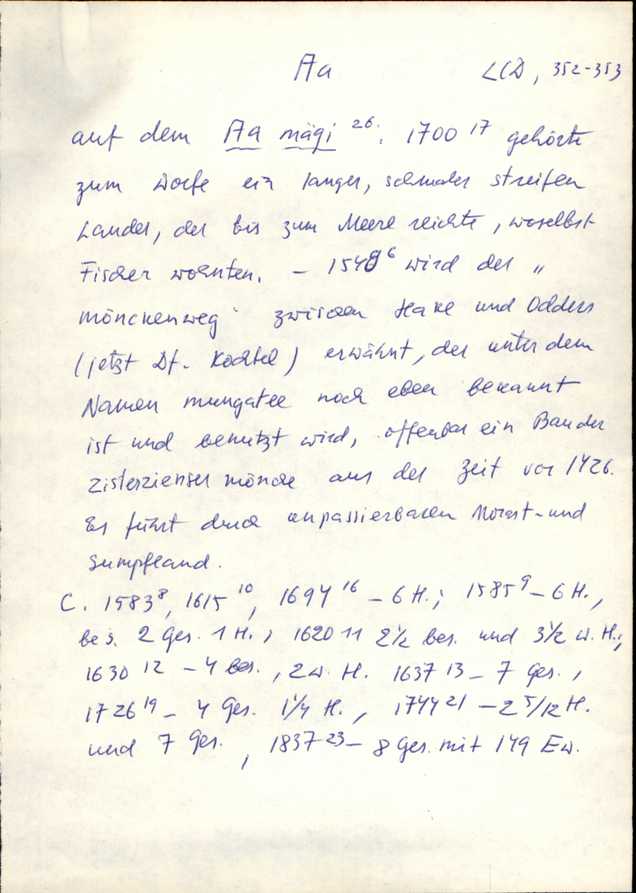 Aa LCD, 352-353
auf dem Aa mägi 26. 1700 17 gehörte
zum Dorfe ein langer, schmaler Streifen
Landes, der bis zum Meere reichte, woselbst
Fischer wohnten. - 1548 6 wird der "
mönchenweg" zwischen Hake und Odders
(jetzt Df. Kochtel) erwähnt, der unter dem
Namen mungatee noch eben bekannt
ist und benutzt wird, offenbar ein Bau der
Zisterziensermönche aus der Zeit vor 1426.
Er führt durch unpassierbaren Morast- und
Sumpfland.
C. 1583 8, 1615 10, 1694 16 - 6 H.; 1585 9 - 6 H.,
bes. 2 Ges. 1 H.; 1620 11 2 1/2 bes. und 3 1/2 w. H.;
1630 12 - 4 bes., 2 w. H. 1637 13 - 7 Ges.,
1726 19 - 4 Ges. 1 1/4 H., 1744 21 - 2 5/12 H.
und 7 Ges., 1837 23 - 8 Ges. mit 149 Ew.